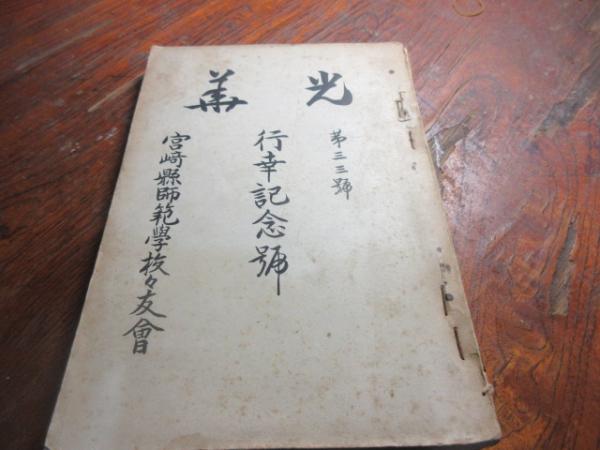 光華
第三三號
行幸記念號
宮崎縣師範學校々友會